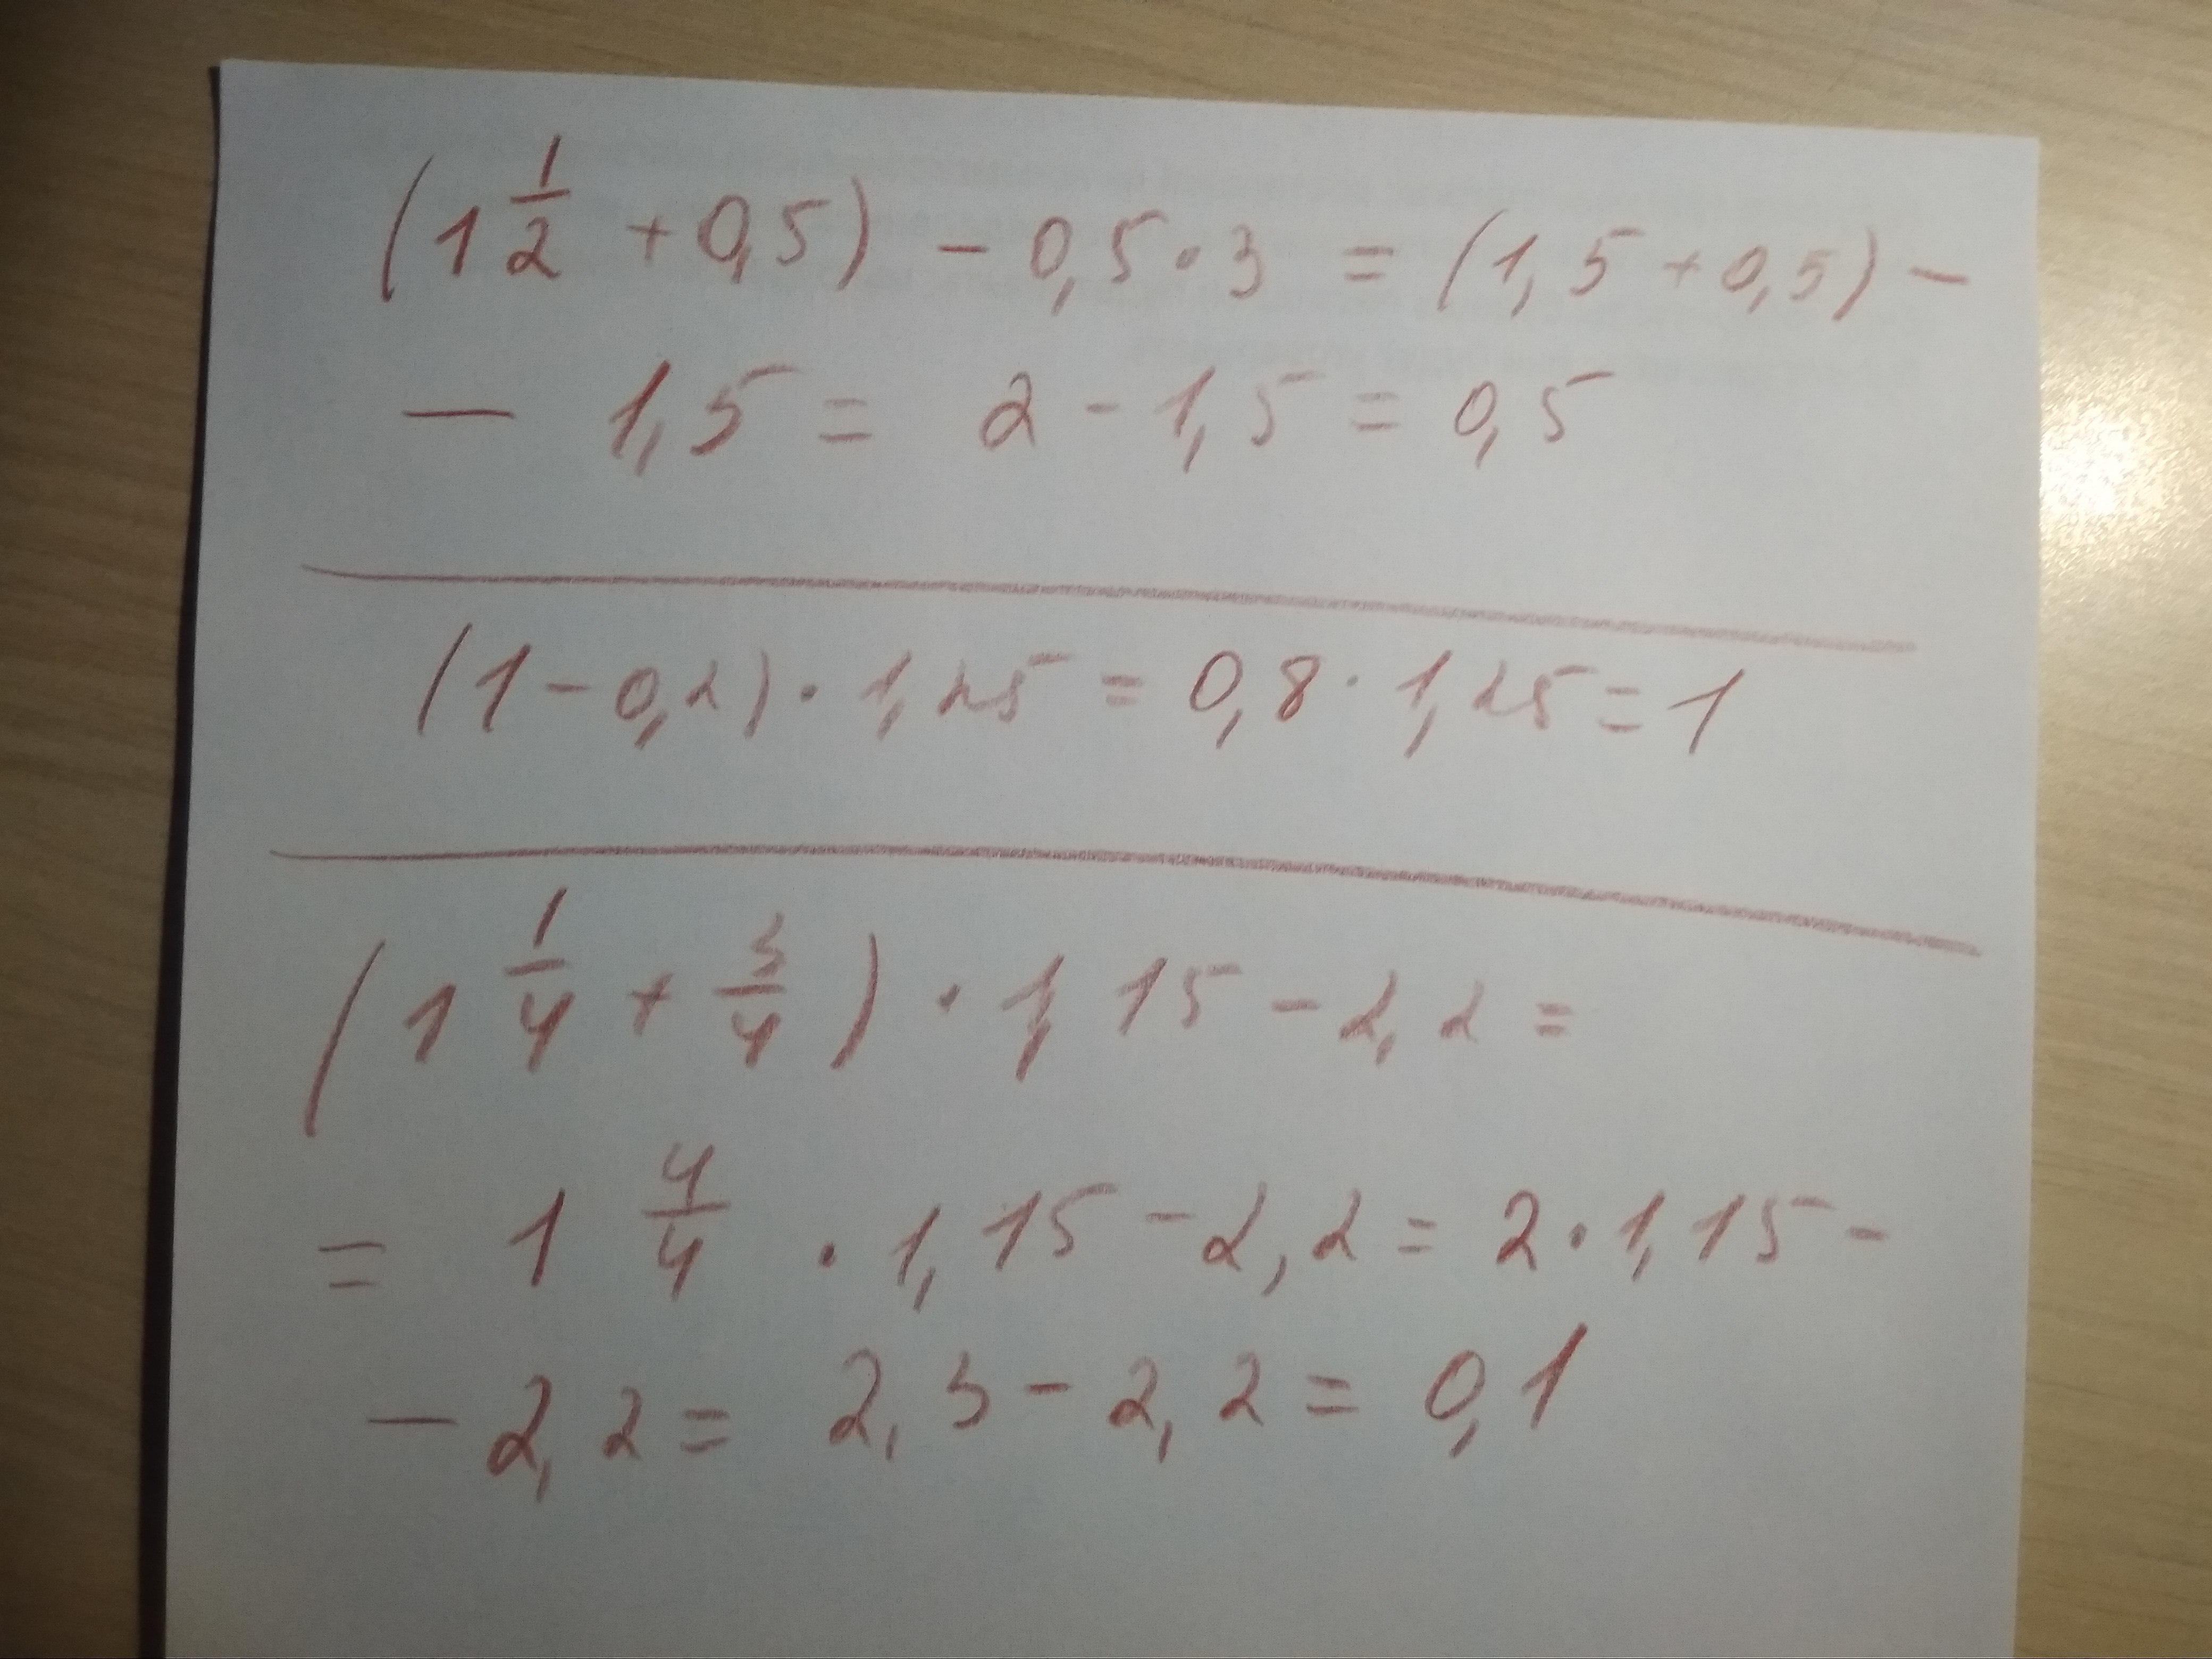 (1 1/2 + 0,5) - 0,5 · 3 = (1,5 + 0,5) -
- 1,5 = 2 - 1,5 = 0,5
(1 - 0,2) · 1,25 = 0,8 · 1,25 = 1
(1 1/4 + 3/4) · 1,15 - 2,2 =
= 1 4/4 · 1,15 - 2,2 = 2 · 1,15 -
- 2,2 = 2,3 - 2,2 = 0,1